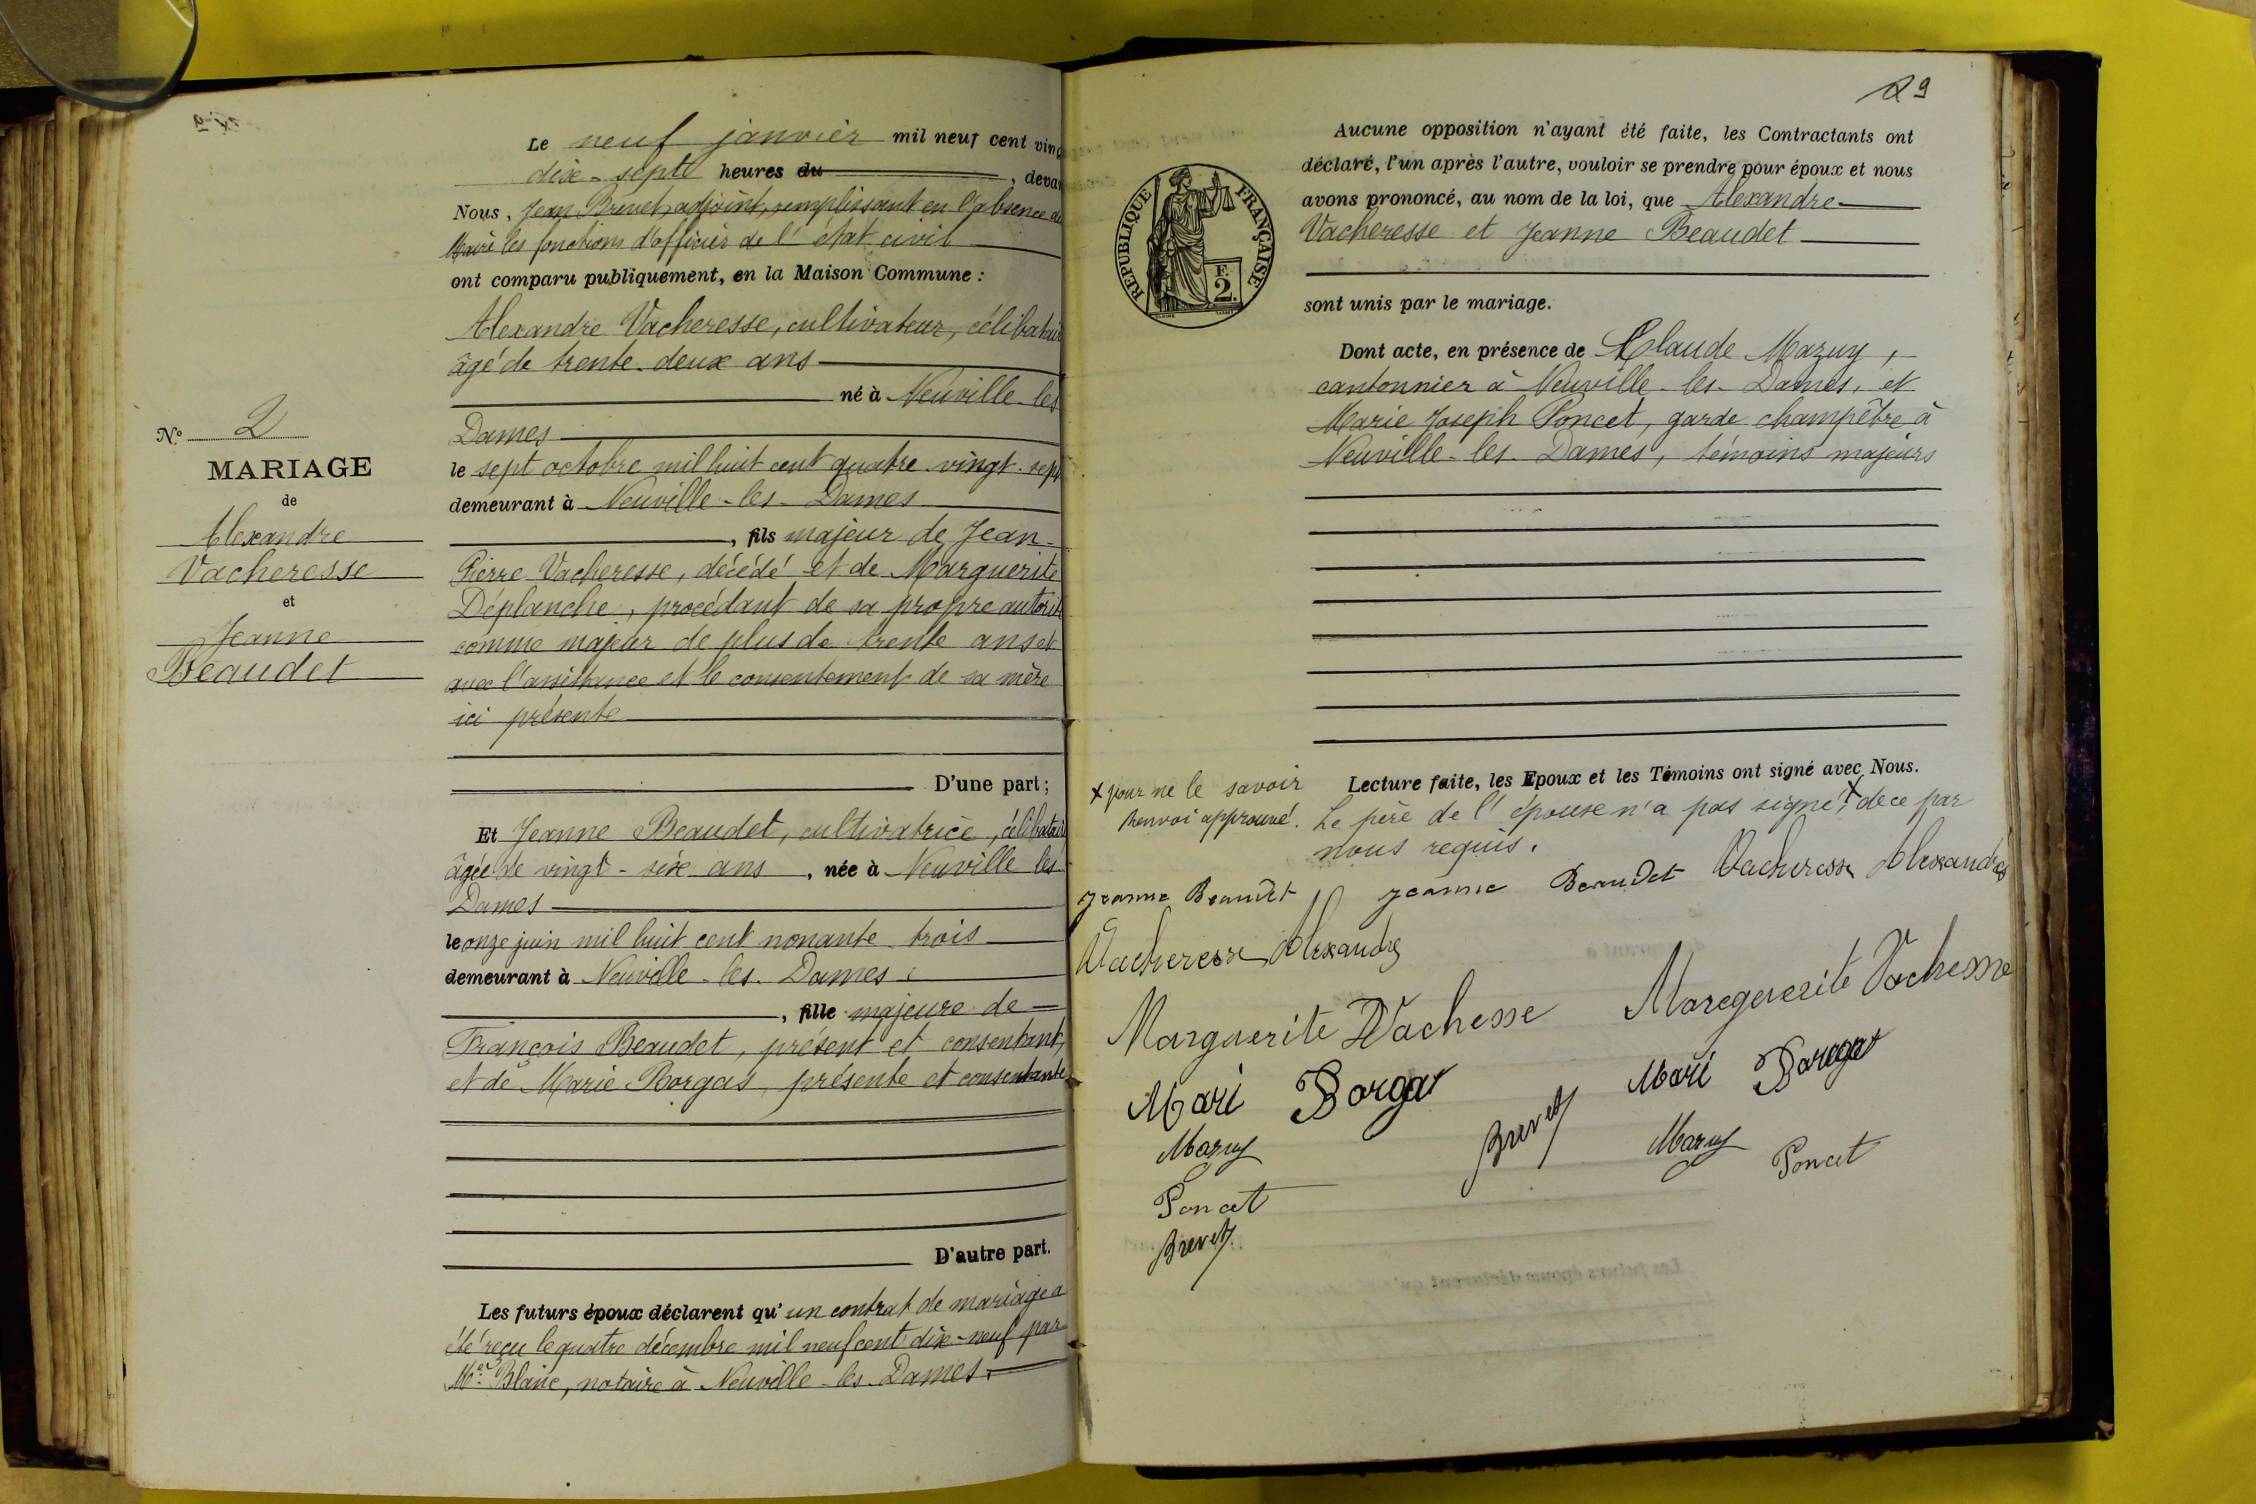 N° 2
MARIAGE
de
Alexandre
Vacheresse
et
Jeanne
Beaudet
Le neuf janvier mil neuf cent ving
dix-sept heures du , deva
Nous, Jean Brevet, adjoint, remplissant en l'absence du
Maire les fonctions d'officier de l'état civil
ont comparu publiquement, en la Maison Commune :
Alexandre Vacheresse, cultivateur, célibatair
âgé de trente-deux ans
né à Neuville-les
Dames
le sept octobre mil huit cent quatre-vingt-sept
demeurant à Neuville-les-Dames
, fils majeur de Jean-
Pierre Vacheresse, décédé et de Marguerite
Déplanche, procédant de sa propre autorit
comme majeur de plus de trente ans et
avec l'assistance et le consentement de sa mère
ici présente
D'une part ;
Et Jeanne Beaudet, cultivatrice, célibatair
âgée de vingt-six ans , née à Neuville les
Dames
le onze juin mil huit cent nonante-trois
demeurant à Neuville-les-Dames
, fille majeure de
François Beaudet, présent et consentant,
et de Marie Borgas, présente et consentante
D'autre part.
Les futurs époux déclarent qu'un contrat de mariage a
été reçu le quatre décembre mil neuf cent dix-neuf par
Me Blanc, notaire à Neuville-les-Dames.
29
RÉPUBLIQUE FRANÇAISE
F.
2.
Aucune opposition n'ayant été faite, les Contractants ont
déclaré, l'un après l'autre, vouloir se prendre pour époux et nous
avons prononcé, au nom de la loi, que Alexandre
Vacheresse et Jeanne Beaudet
sont unis par le mariage.
Dont acte, en présence de Claude Mazuy,
cantonnier à Neuville-les-Dames, et
Marie Joseph Poncet, garde champêtre à
Neuville-les-Dames, témoins majeurs
Lecture faite, les Epoux et les Témoins ont signé avec Nous.
Le père de l'épouse n'a pas signé, x de ce par
nous requis.
x pour ne le savoir
Renvoi approuvé.
Jeanne Beaudet Jeanne Beaudet Vacheresse Alexandre
Vacheresse Alexandre
Marguerite Vachesse Maregererite Vachesse
Mari Borgas Mari Borgas
Mazuy Brevet Mazuy Poncet
Poncet
Brevet